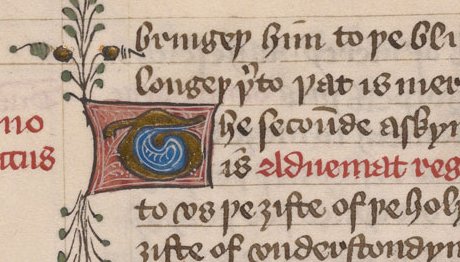 bringeþ him to þe bli
longeþ þto þat is mer
no
The secou̅de askyn
ctus
is Adueniat reg
to vs þe ȝifte of þe holy
ȝifte of vnderstondyn